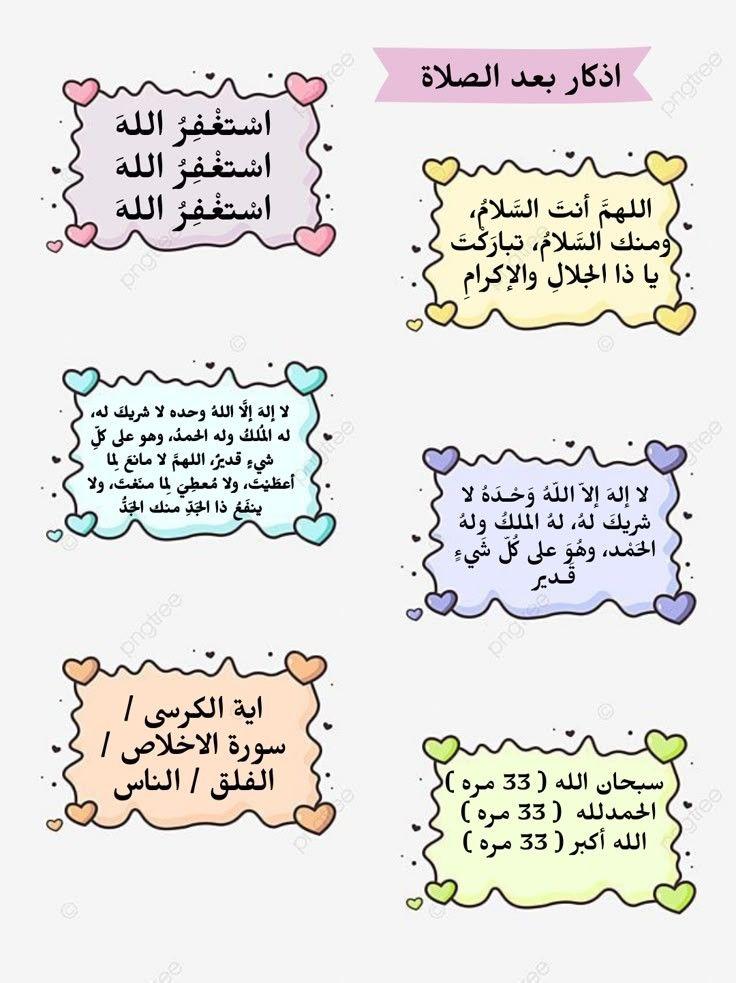 اذكار بعد الصلاة
اسْتغْفِرُ اللهَ
اسْتغْفِرُ اللهَ
اسْتغْفِرُ اللهَ
اللهمَّ أنتَ السَّلامُ،
ومنك السَّلامُ، تبارَكْتَ
يا ذا الجلالِ والإكرامِ
لا إلهَ إلَّا اللهُ وحده لا شريكَ له،
له المُلكُ وله الحمدُ، وهو على كلِّ
شيءٍ قديرٌ، اللهمَّ لا مانعَ لِما
أعطَيْتَ، ولا مُعطِيَ لِما منَعْتَ، ولا
ينفَعُ ذا الجَدِّ منك الجَدُّ
لا إلهَ إلاّ اللّهُ وَحْـدَهُ لا
شريكَ لهُ، لهُ الملكُ ولهُ
الحَمْد، وهُوَ على كُلّ شَيءٍ
قَـدير
اية الكرسى /
سورة الاخلاص /
الفلق / الناس
سبحان الله ( 33 مره )
الحمدلله ( 33 مره )
الله أكبر ( 33 مره )
pngtree
pngtree
pngtree
pngtree
pngtree
pngtree
pngtree
pngtree
pngtree
pngtree
pngtree
pngtree